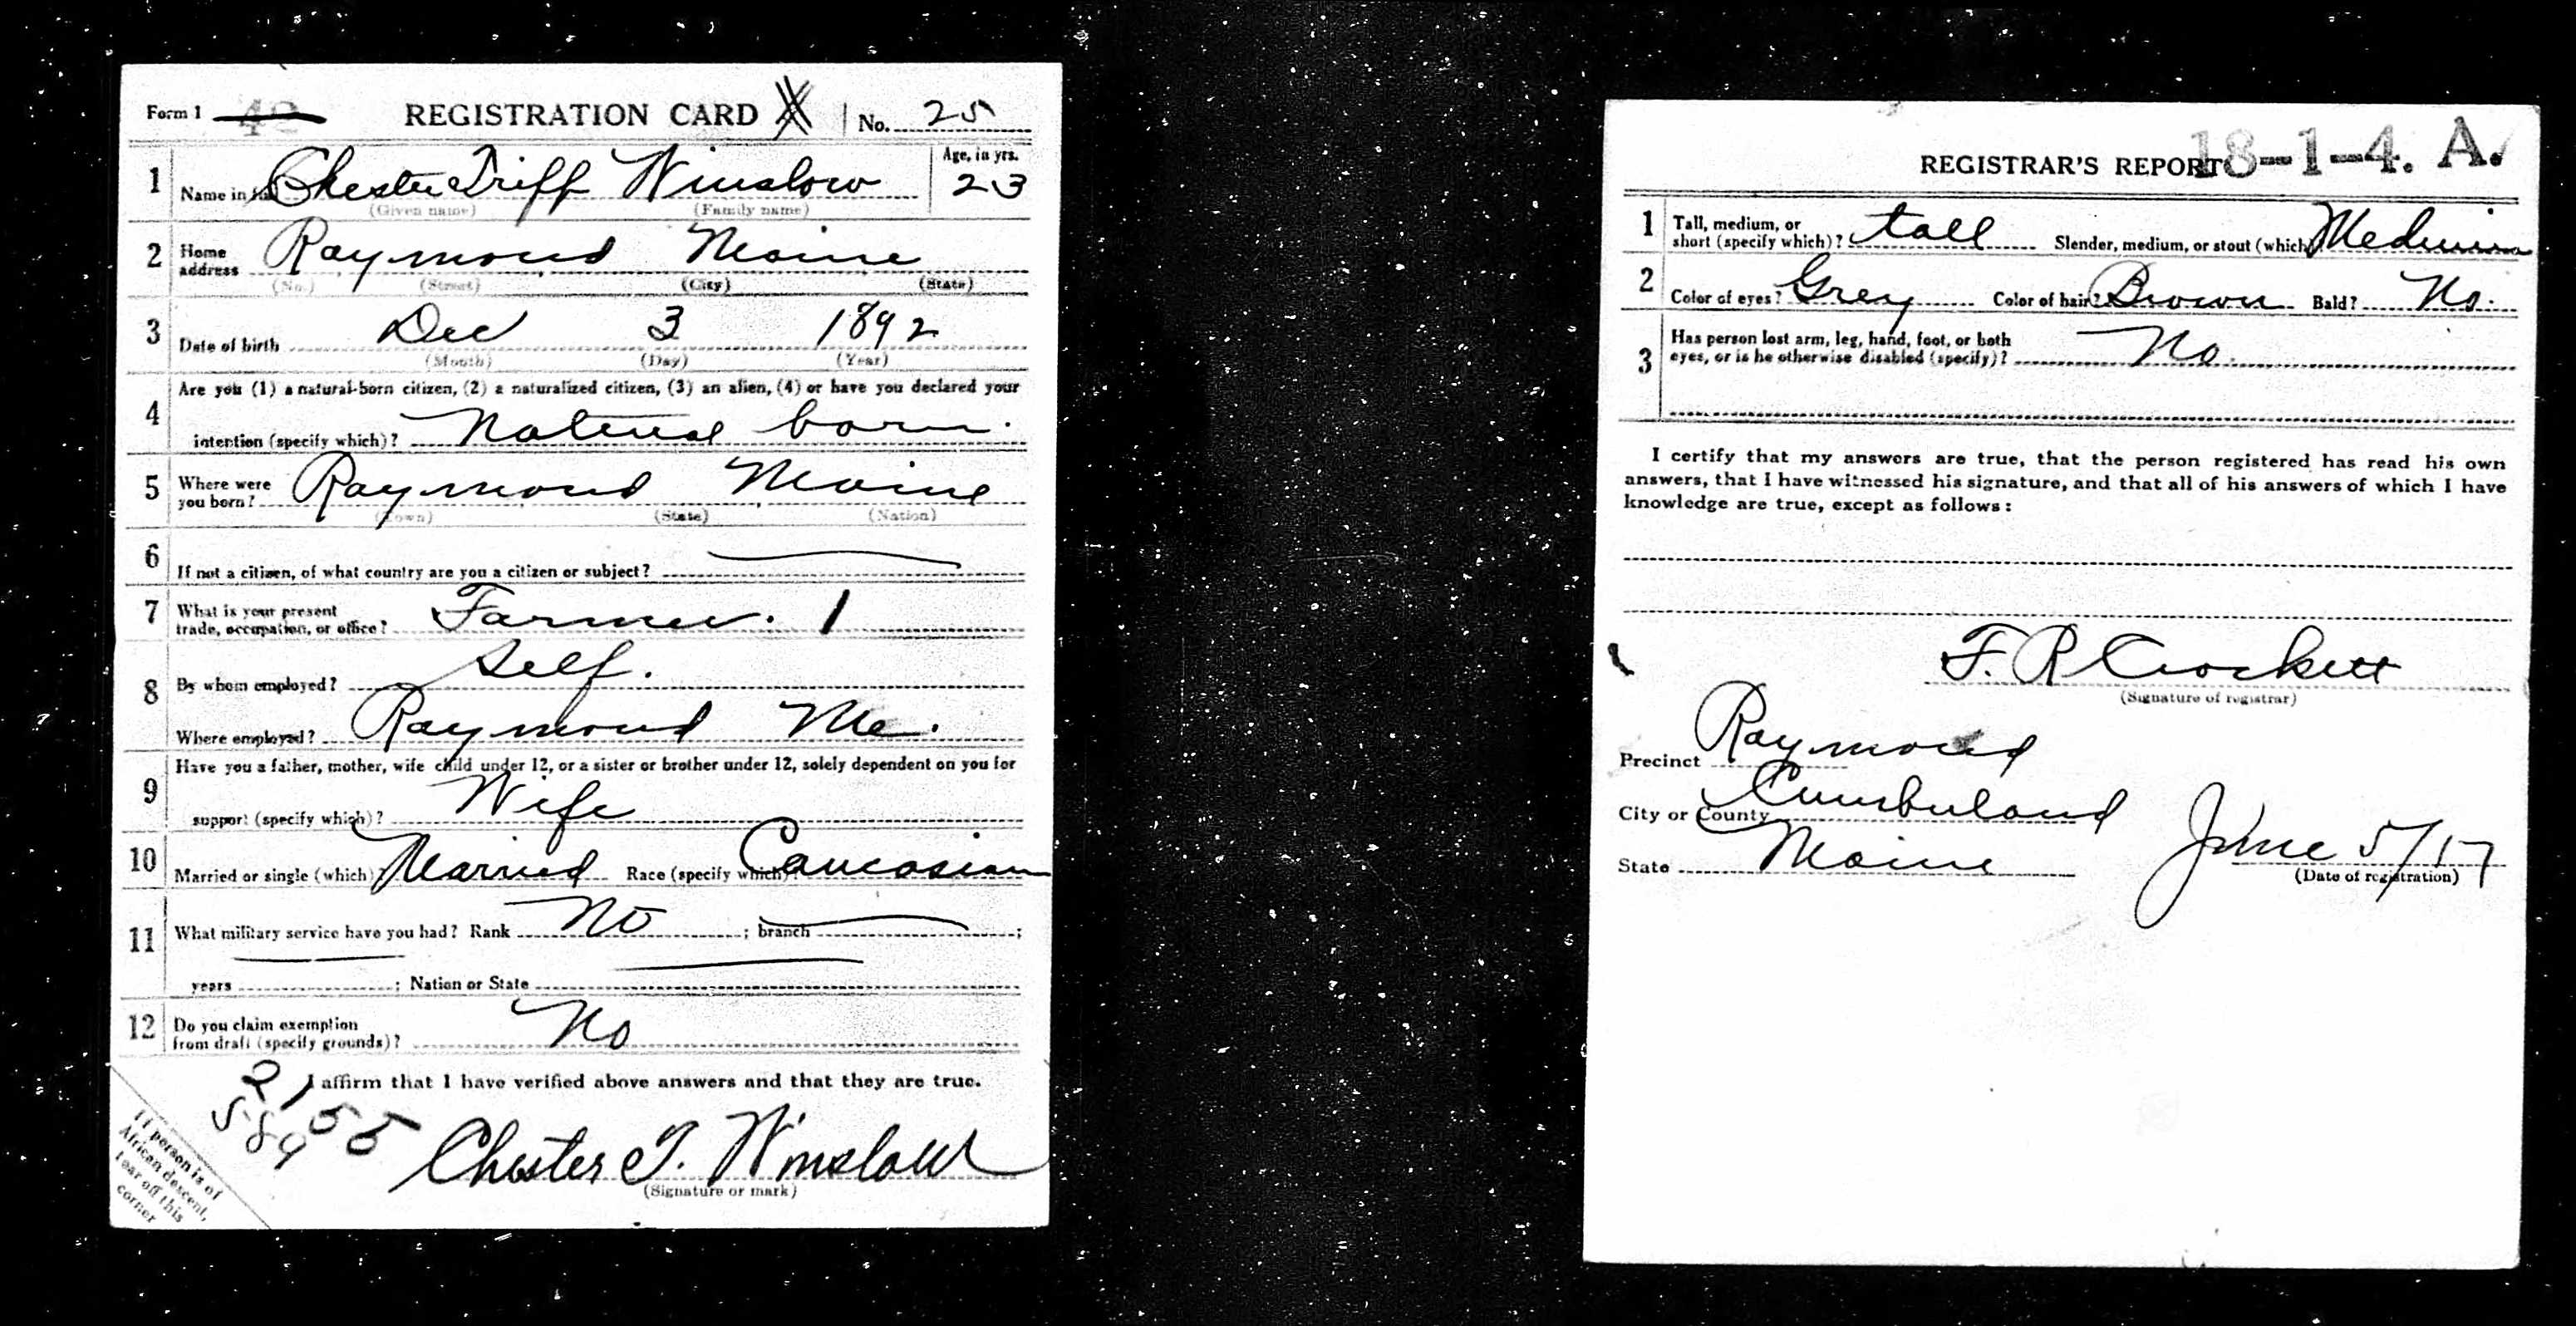 Form 1 42 REGISTRATION CARD No. 25
1 Name in full Chester Triff Winslow Age, in yrs. 23
(Given name) (Family name)
2 Home address Raymond Maine
(No.) (Street) (City) (State)
3 Date of birth Dec 3 1892
(Month) (Day) (Year)
4 Are you (1) a natural-born citizen, (2) a naturalized citizen, (3) an alien, (4) or have you declared your
intention (specify which)? Natural born.
5 Where were you born? Raymond Maine
(Town) (State) (Nation)
6 If not a citizen, of what country are you a citizen or subject?
7 What is your present trade, occupation, or office? Farmer. 1
8 By whom employed? Self.
Where employed? Raymond Me.
9 Have you a father, mother, wife child under 12, or a sister or brother under 12, solely dependent on you for
support (specify which)? Wife
10 Married or single (which)? Married Race (specify which)? Caucasian
11 What military service have you had? Rank No ; branch ;
years ; Nation or State
12 Do you claim exemption from draft (specify grounds)? No
I affirm that I have verified above answers and that they are true.
Chester T. Winslow
(Signature or mark)
If person is of
African descent,
tear off this
corner
REGISTRAR'S REPORT 18-1-4. A.
1 Tall, medium, or short (specify which)? tall Slender, medium, or stout (which)? Medium
2 Color of eyes? Grey Color of hair? Brown Bald? No.
3 Has person lost arm, leg, hand, foot, or both eyes, or is he otherwise disabled (specify)? No.
I certify that my answers are true, that the person registered has read his own
answers, that I have witnessed his signature, and that all of his answers of which I have
knowledge are true, except as follows:
F. R Crockett
(Signature of registrar)
Precinct Raymond
City or County Cumberland
State Maine June 5/17
(Date of registration)